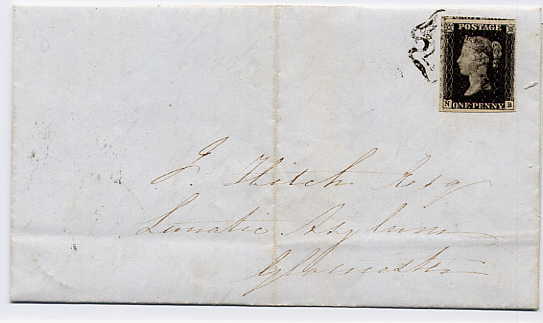 POSTAGE
ONE PENNY
J. Hitch Esq
Lunatic Asylum
Gloucester